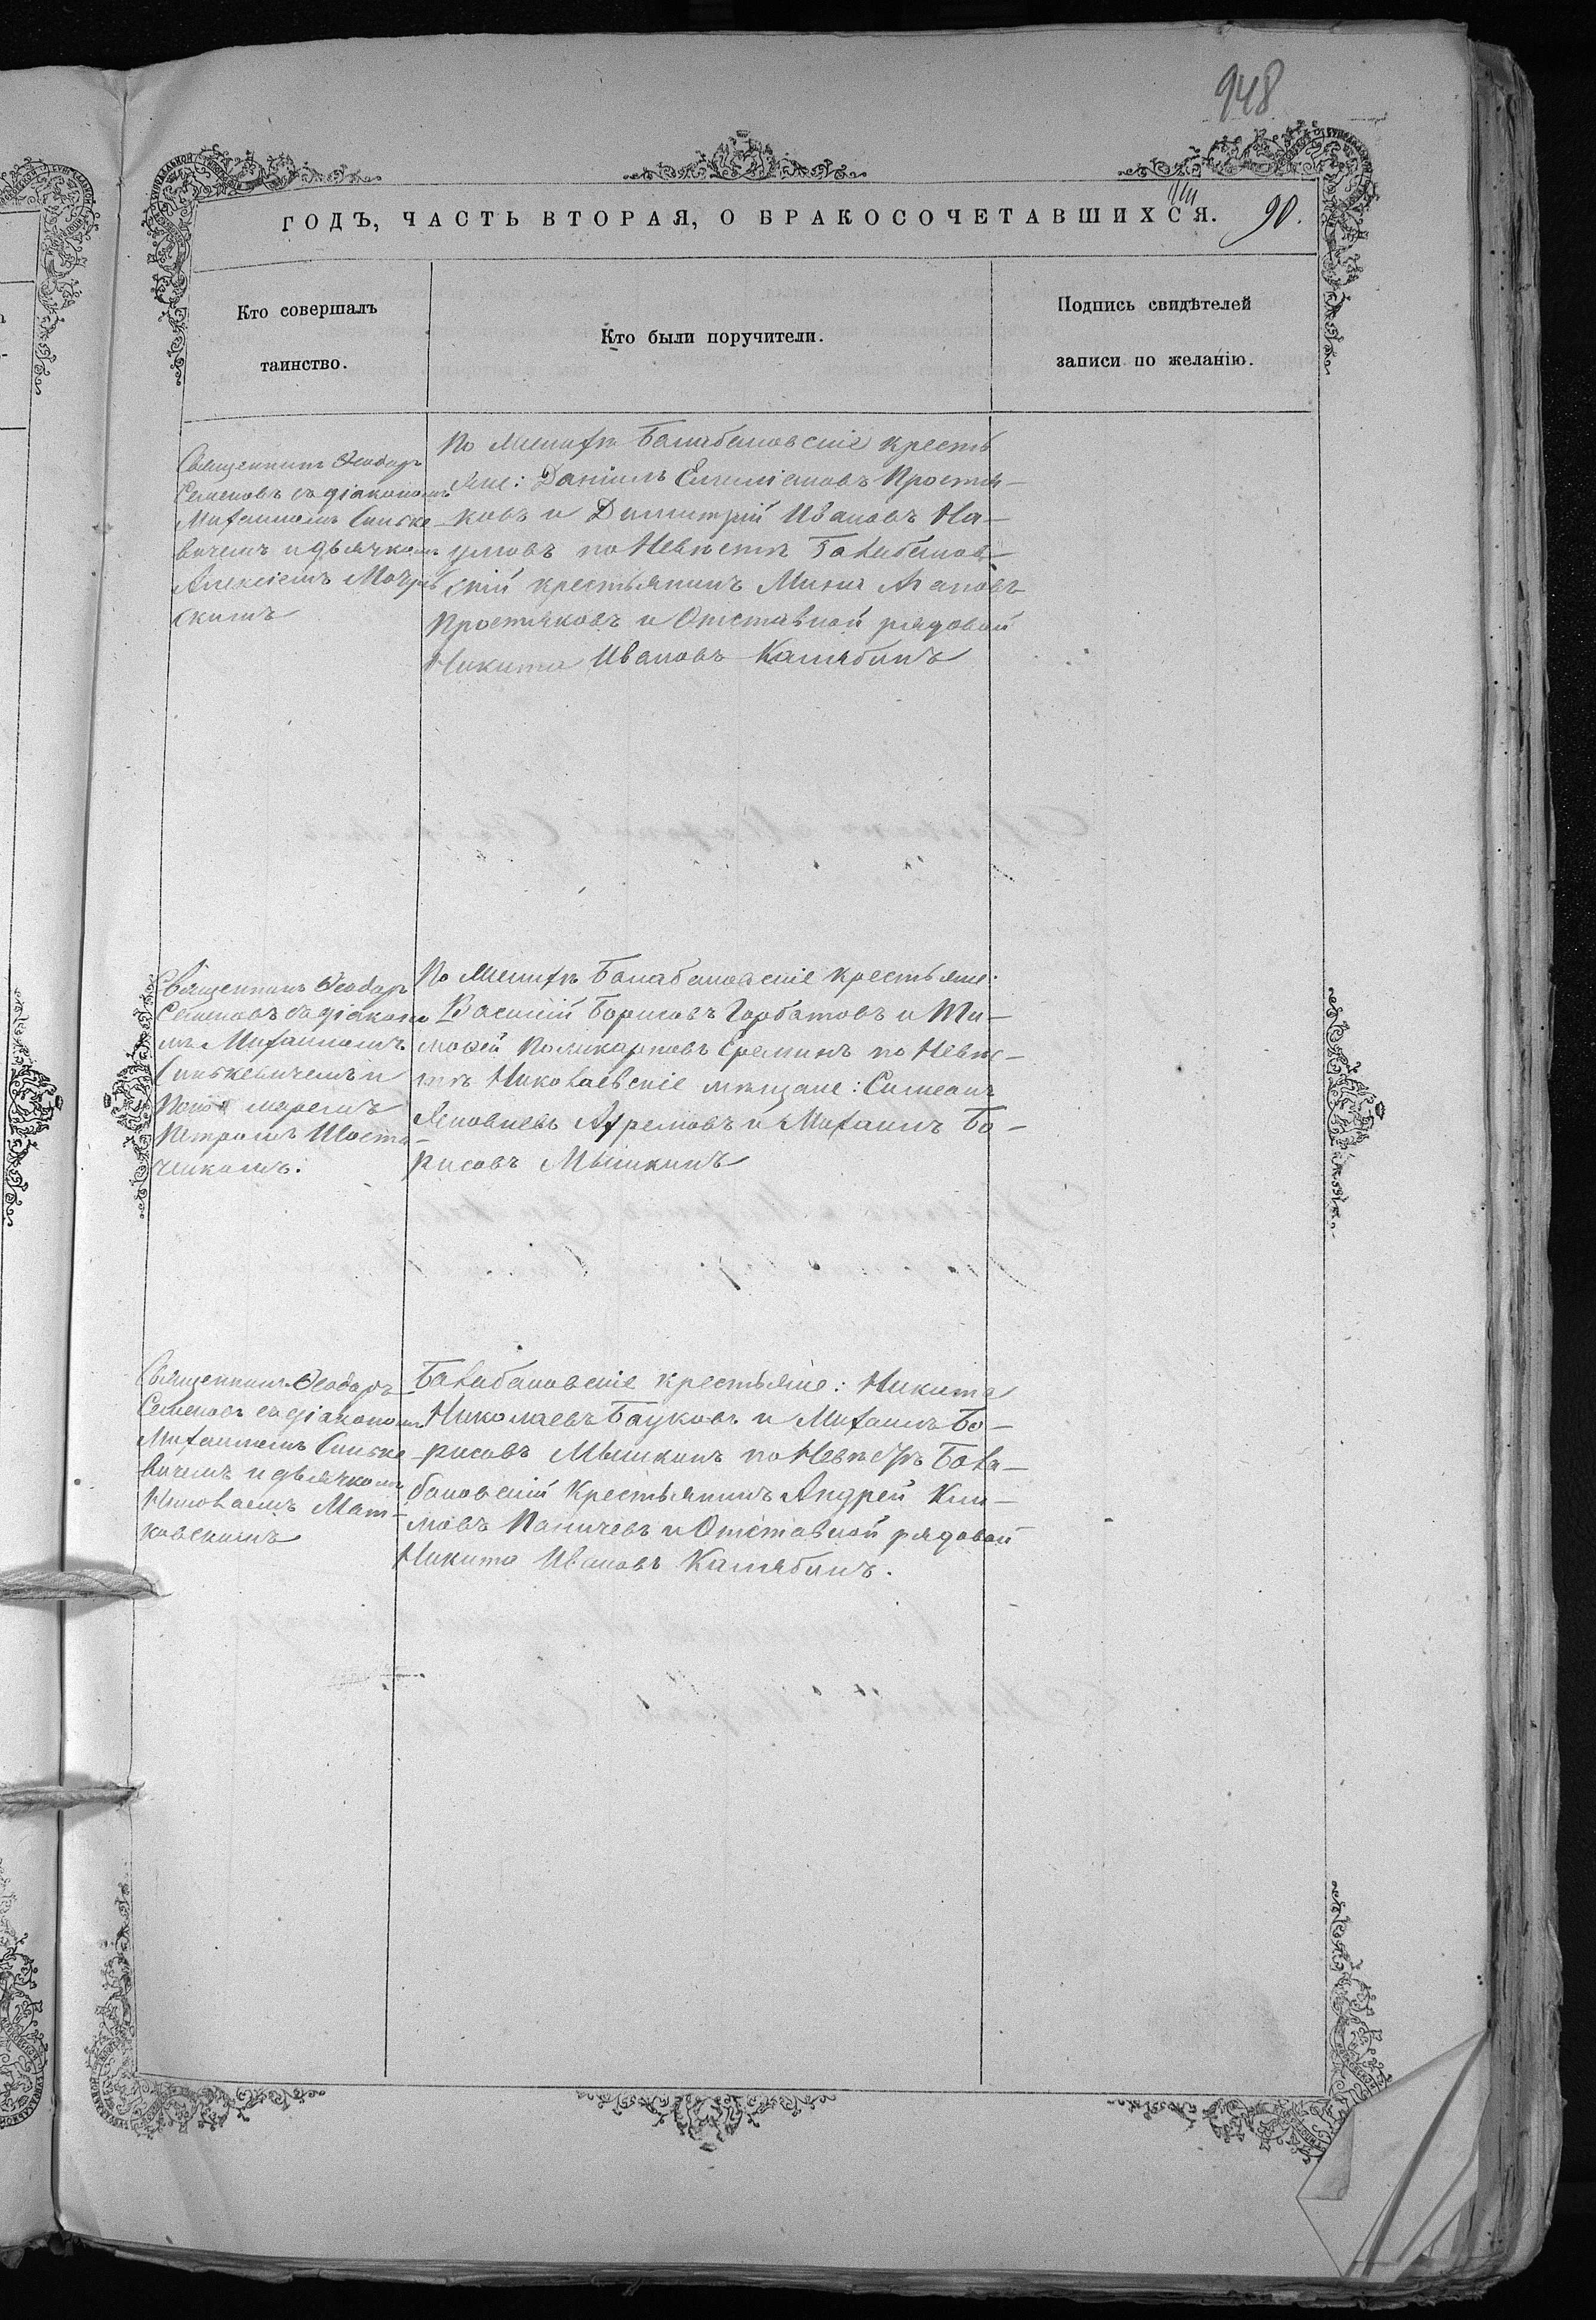 948
ГОДЪ, ЧАСТЬ ВТОРАЯ, О БРАКОСОЧЕТАВШИХСЯ. 90.
Кто совершалъ
таинство.
Кто были поручители.
Подпись свидѣтелей
записи по желанію.
Священникъ Ѳеодоръ
Семеновъ съ діакономъ
Михаиломъ Синьке
вичемъ и дьячкомъ
Алексіемъ
скимъ
По Женихѣ Балабановскіе кресть
яне: Даніилъ Емеліановъ Простя-
ковъ и Димитрій Ивановъ На-
умовъ по Невѣстѣ Балабанов-
скій крестьянинъ Мина Агаповъ
Простяковъ и Отставной рядовой
Никита Ивановъ Калябинъ
Священникъ Ѳеодоръ
Семеновъ съ діаконо
мъ Михаиломъ
Синькевичемъ и
Поно маремъ
Петромъ Шоста-
чикомъ.
По Женихѣ Балабановскіе крестьяне:
Василій Борисовъ Горбатовъ и Ти-
мофей Поликарповъ Ереминъ по Невѣс-
тѣ Николаевскіе мѣщане: Симеонъ
Яковлевъ Ахремовъ и Михаилъ Бо-
рисовъ Мышкинъ
Священникъ Ѳеодоръ
Семеновъ съ діакономъ
Михаиломъ Синьке
вичемъ и дьячкомъ
Николаемъ Мат-
ковскимъ
Балабановскіе крестьяне: Никита
Николаевъ Бауковъ и Михаилъ Бо-
рисовъ Мышкинъ по Невѣстѣ Бала-
бановскій Крестьянинъ Андрей Кли-
мовъ Паничевъ и Отставной рядовой
Никита Ивановъ Калябинъ.